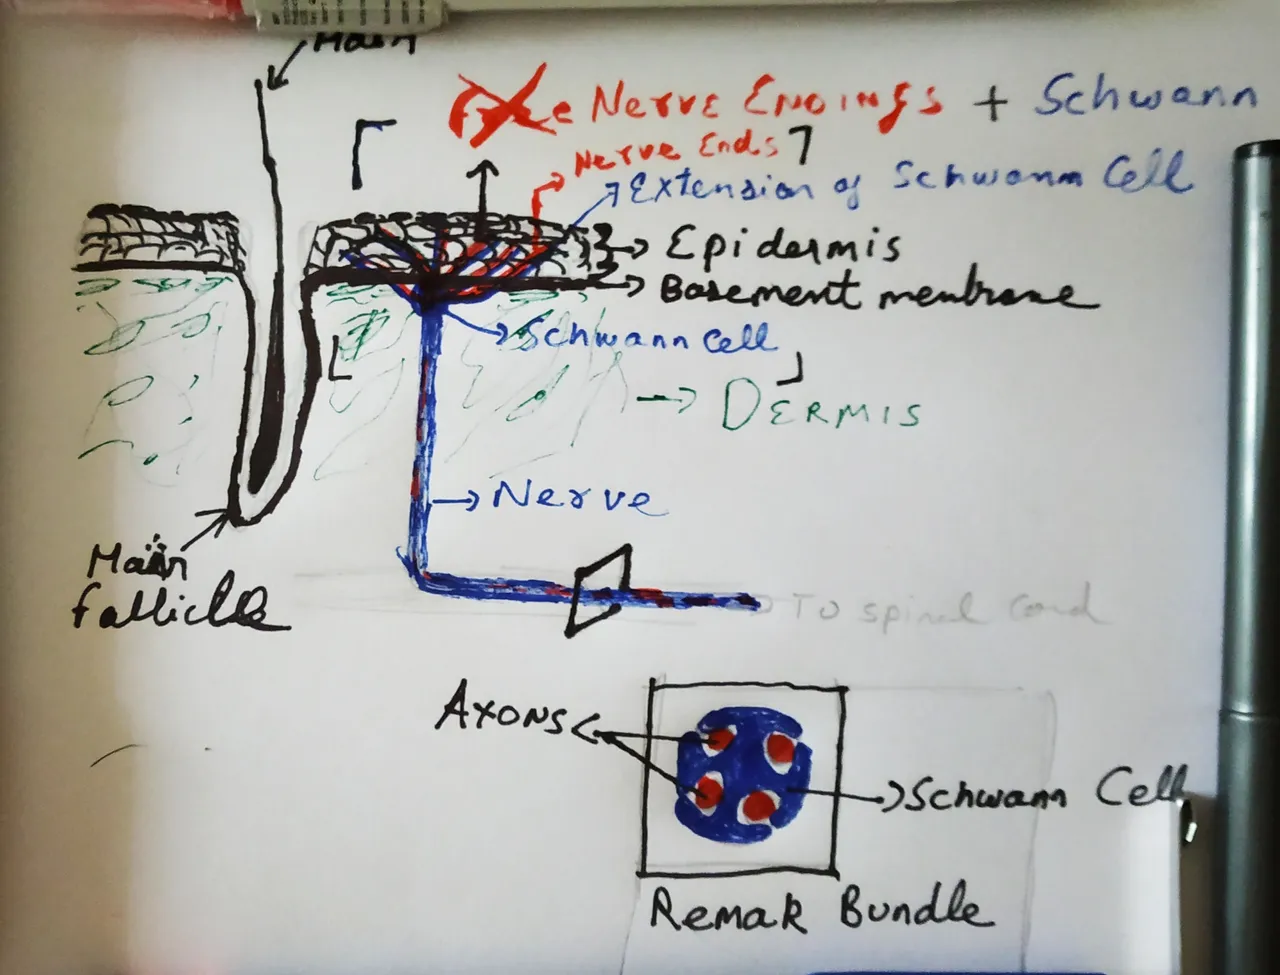 Hair
Free Nerve Endings + Schwann
Nerve Ends
Extension of Schwann Cell
Epidermis
Basement membrane
Schwann Cell
Dermis
Nerve
Hair
follicle
To spinal Cord
Axons
Schwann Cell
Remak Bundle